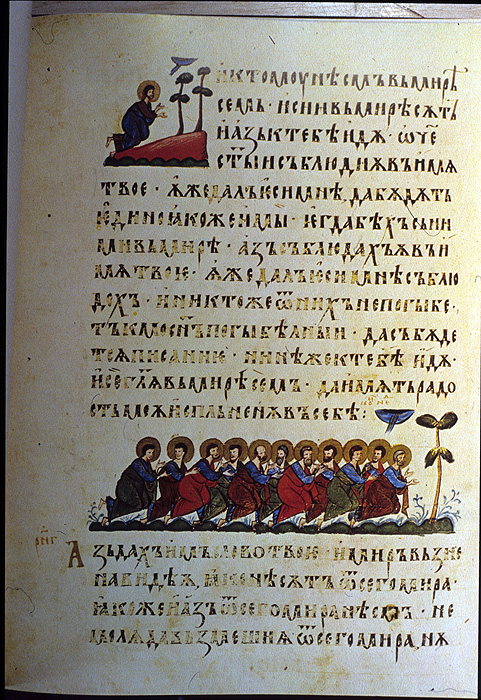 И к томоу нѣсмъ въ мирѣ
семь · и сии въ мирѣ сѫть
и азъ к тебѣ идѫ · ѡч҃е
ст҃ыи съблюди ѧ въ имѧ
твое · ѧже далъ ѥси мнѣ, да бѫдѫть
ѥдино ꙗкоже и мы · ѥгда бѣхъ съ ни
ми въ мирѣ · азъ съблюдахъ ѧ въ и
мѧ твоѥ · ѧже далъ ѥси мнѣ съблю
дохъ · и никтоже ѿ нихъ не погыбе ·
тъкмо сн҃ъ погыбѣлныи · да събѫде
тсѧ писаниѥ · нинѣ же к тебѣ идѫ ·
и се гл҃ѧ въ мирѣ семъ · да имѧть радо
сть моѫ исплъненѫ въ себѣ :
Азъ дахъ имъ слово твоѥ · и миръ възне
навидѣ ѧ, ꙗко не сѫтъ ѿ сего мира ·
ꙗкоже и азъ ѿ сего мира нѣсмъ · не
молѧ да възмеши ѧ ѿ сего мира, нѫ